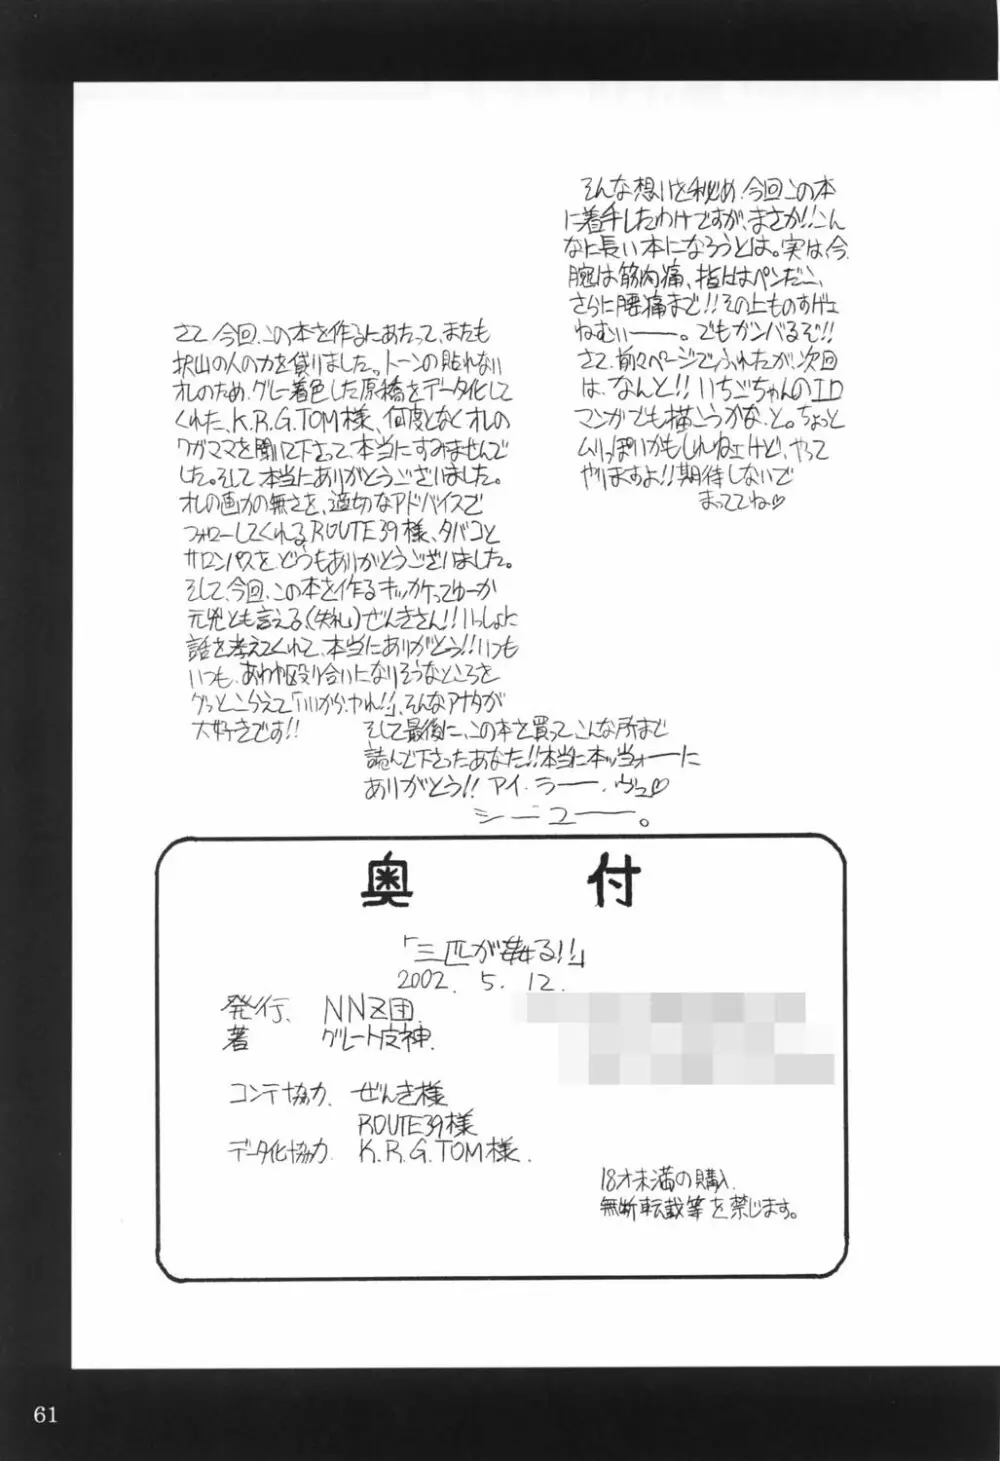 そんな想いを秘め、今回この本
に着手したわけですが、まさか!!こん
なに長い本になろうとは。実は、今、
腕は筋肉痛、指にはペンだこ、
さらに腰痛まで!!その上ものすげェ
ねむぃーーー。でもガンバるぞ!!
さて、前々ページでふれたが、次回
は、なんと!!いちごちゃんのエロ
マンガでも描こうかな、と。ちょっと
ムリっぽいかもしれねェけど、やって
やりますよ!!期待しないで
まっててね♡
さて、今回、この本を作るにあたって、またも
沢山の人の力を貸りました。トーンの貼れない
オレのため、グレー着色した原稿をデータ化して
くれた、K.R.G.TOM様、何度となくオレの
ワガママを聞いて下さって、本当にすみませんで
した。そして、本当にありがとうございました。
オレの画力の無さを、適切なアドバイスで
フォローしてくれる、ROUTE39様、タバコと
サロンパスを、どうもありがとうございました。
そして、今回、この本を作るキッカケってゆーか
元兇とも言える(失礼)ぜんきさん!!いっしょに
話を考えてくれて、本当にありがとう!!いつも
いつも、あわや殴り合いになりそうなところを
グッとこらえて「いいから、ヤれ!!」、そんなアナタが
大好きです!!
そして最後に、この本を買って、こんな所まで
読んで下さったあなた!!本当に本ッ当ォーーに
ありがとう!!アイ・ラーー・ヴユ♡
シーユーーー。
奥付
「三匹が姦る!!」
2002. 5. 12.
発行、NNZ団.
著 グレート皮神.
コンテ協力、ぜんき様
ROUTE39様
データ化協力、K.R.G.TOM様.
18才未満の購入、
無断転載等を禁じます。
61